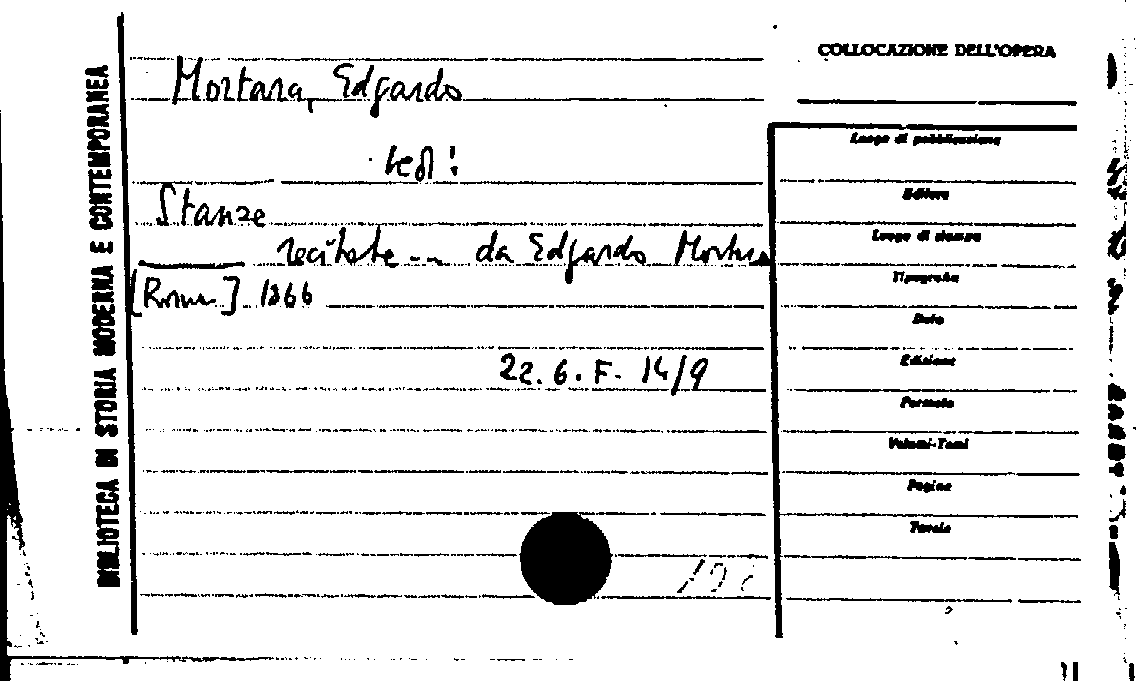 COLLOCAZIONE DELL'OPERA
BIBLIOTECA DI STORIA MODERNA E CONTEMPORANEA
Mortara, Edgardo
vedi:
Stanze
recitate ... da Edgardo Mortara
[Roma] 1866
22. 6. F. 14/9
Luogo di pubblicazione
Editore
Luogo di stampa
Tipografia
Data
Edizione
Formato
Volumi-Tomi
Pagine
Tavole